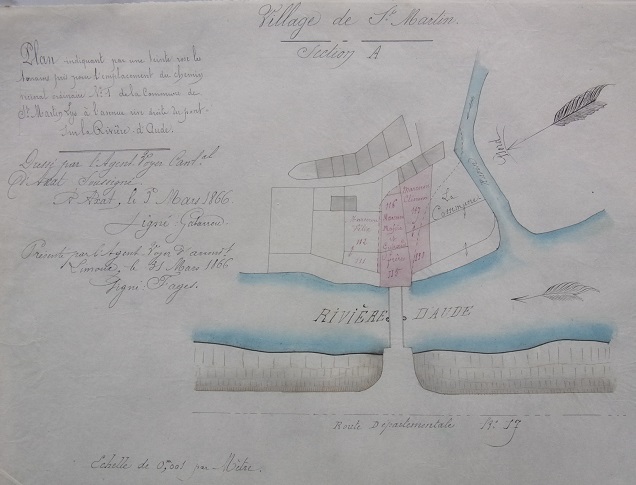 Village de St Martin.
Section A
Plan indiquant par une teinte rose les
terrains pris pour l'emplacement du chemin
vicinal ordinaire No 1 de la Commune de
St Martin Lys à l'avenue rive droite du pont
sur la Rivière d'Aude.
Dressé par l'Agent Voyer Cantal
d'Axat Soussigné
A Axat, le 3 Mars 1866
Signé:
Présenté par l'Agent Voyer d'arrondt
Limoux, le 31 Mars 1866
Signé: Pages.
Nord
La Commune
112
111
RIVIÈRE D'AUDE
Route Départementale No 17
Echelle de 0m,001 par Mètre.